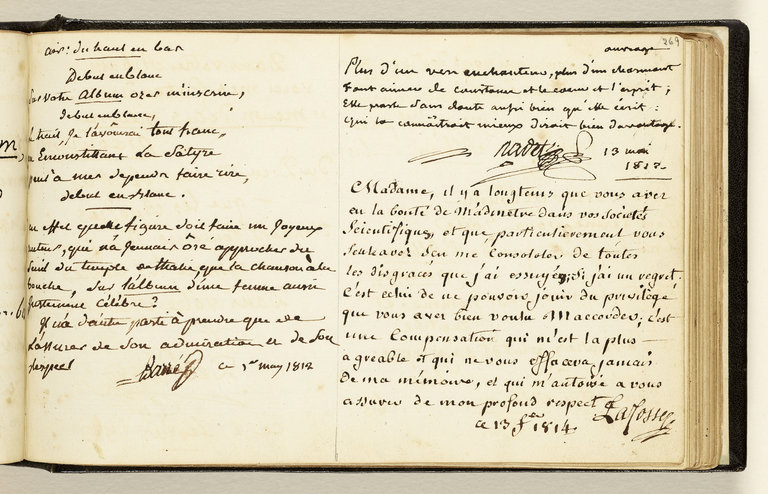 air: du haut en bas
Debut en blanc
Sur votre Album oser m'inscrire,
debut en blanc,
Je l'avoûrai tout franc,
En constituant La Satyre
à mes depens faire rire,
debut en blanc.
effet quelle figure doit faire un Joyeux
auteur, qui n'a Jamais osé approcher du
Seuil du temple de thalie que la chanson à la
bouche, sur l'album d'une femme aussi
justement célèbre?
Il n'a d'autre parti à prendre que de
l'assurer de Son admiration et de Son
respect
Barré ce 1er may 1812
269
ouvrage
Plus d'un vers enchanteur, plus d'un charmant
font aimer de Constance et le coeur et l'esprit;
Elle parle sans doute aussi bien qu'elle écrit:
Qui la connaîtrait mieux dirait bien davantage.
radet 13 mai
1812
Madame, il y a longtems que vous avez
eu la bonté de m'admettre dans vos sociétés
Scientifiques, et que particulierement vous
Seule avez Seu me Consoloer de toutes
les disgraces que j'ai essuyés; Si j'ai un regret,
C'est celui de ne pouvoir jouir du privilége
que vous avez bien voulu M'accorder; c'est
une Compensation qui m'est la plus
agreable et qui ne vous effacera jamais
de ma mémoire, et qui m'autorise a vous
assurer de mon profond respect
Lafosse
ce 13 f.er 1814